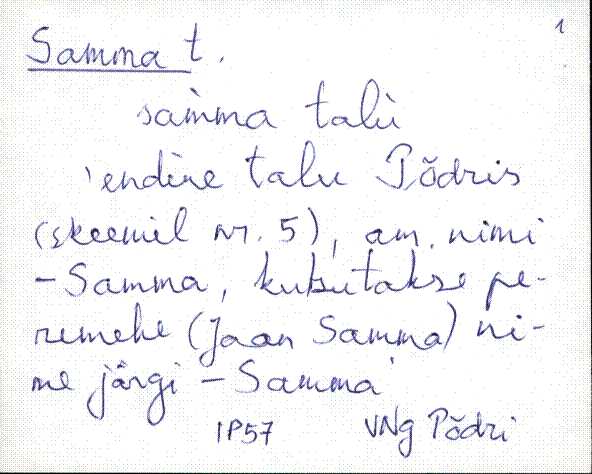 1
Samma t.
sam̀ma talù
'endine talu Põdris
(skeemil nr. 5), am. nimi
– Samma, kutsutakse pe-
remehe (Jaan Samma) ni-
me järgi – Samma
IP57 VNg Põdri